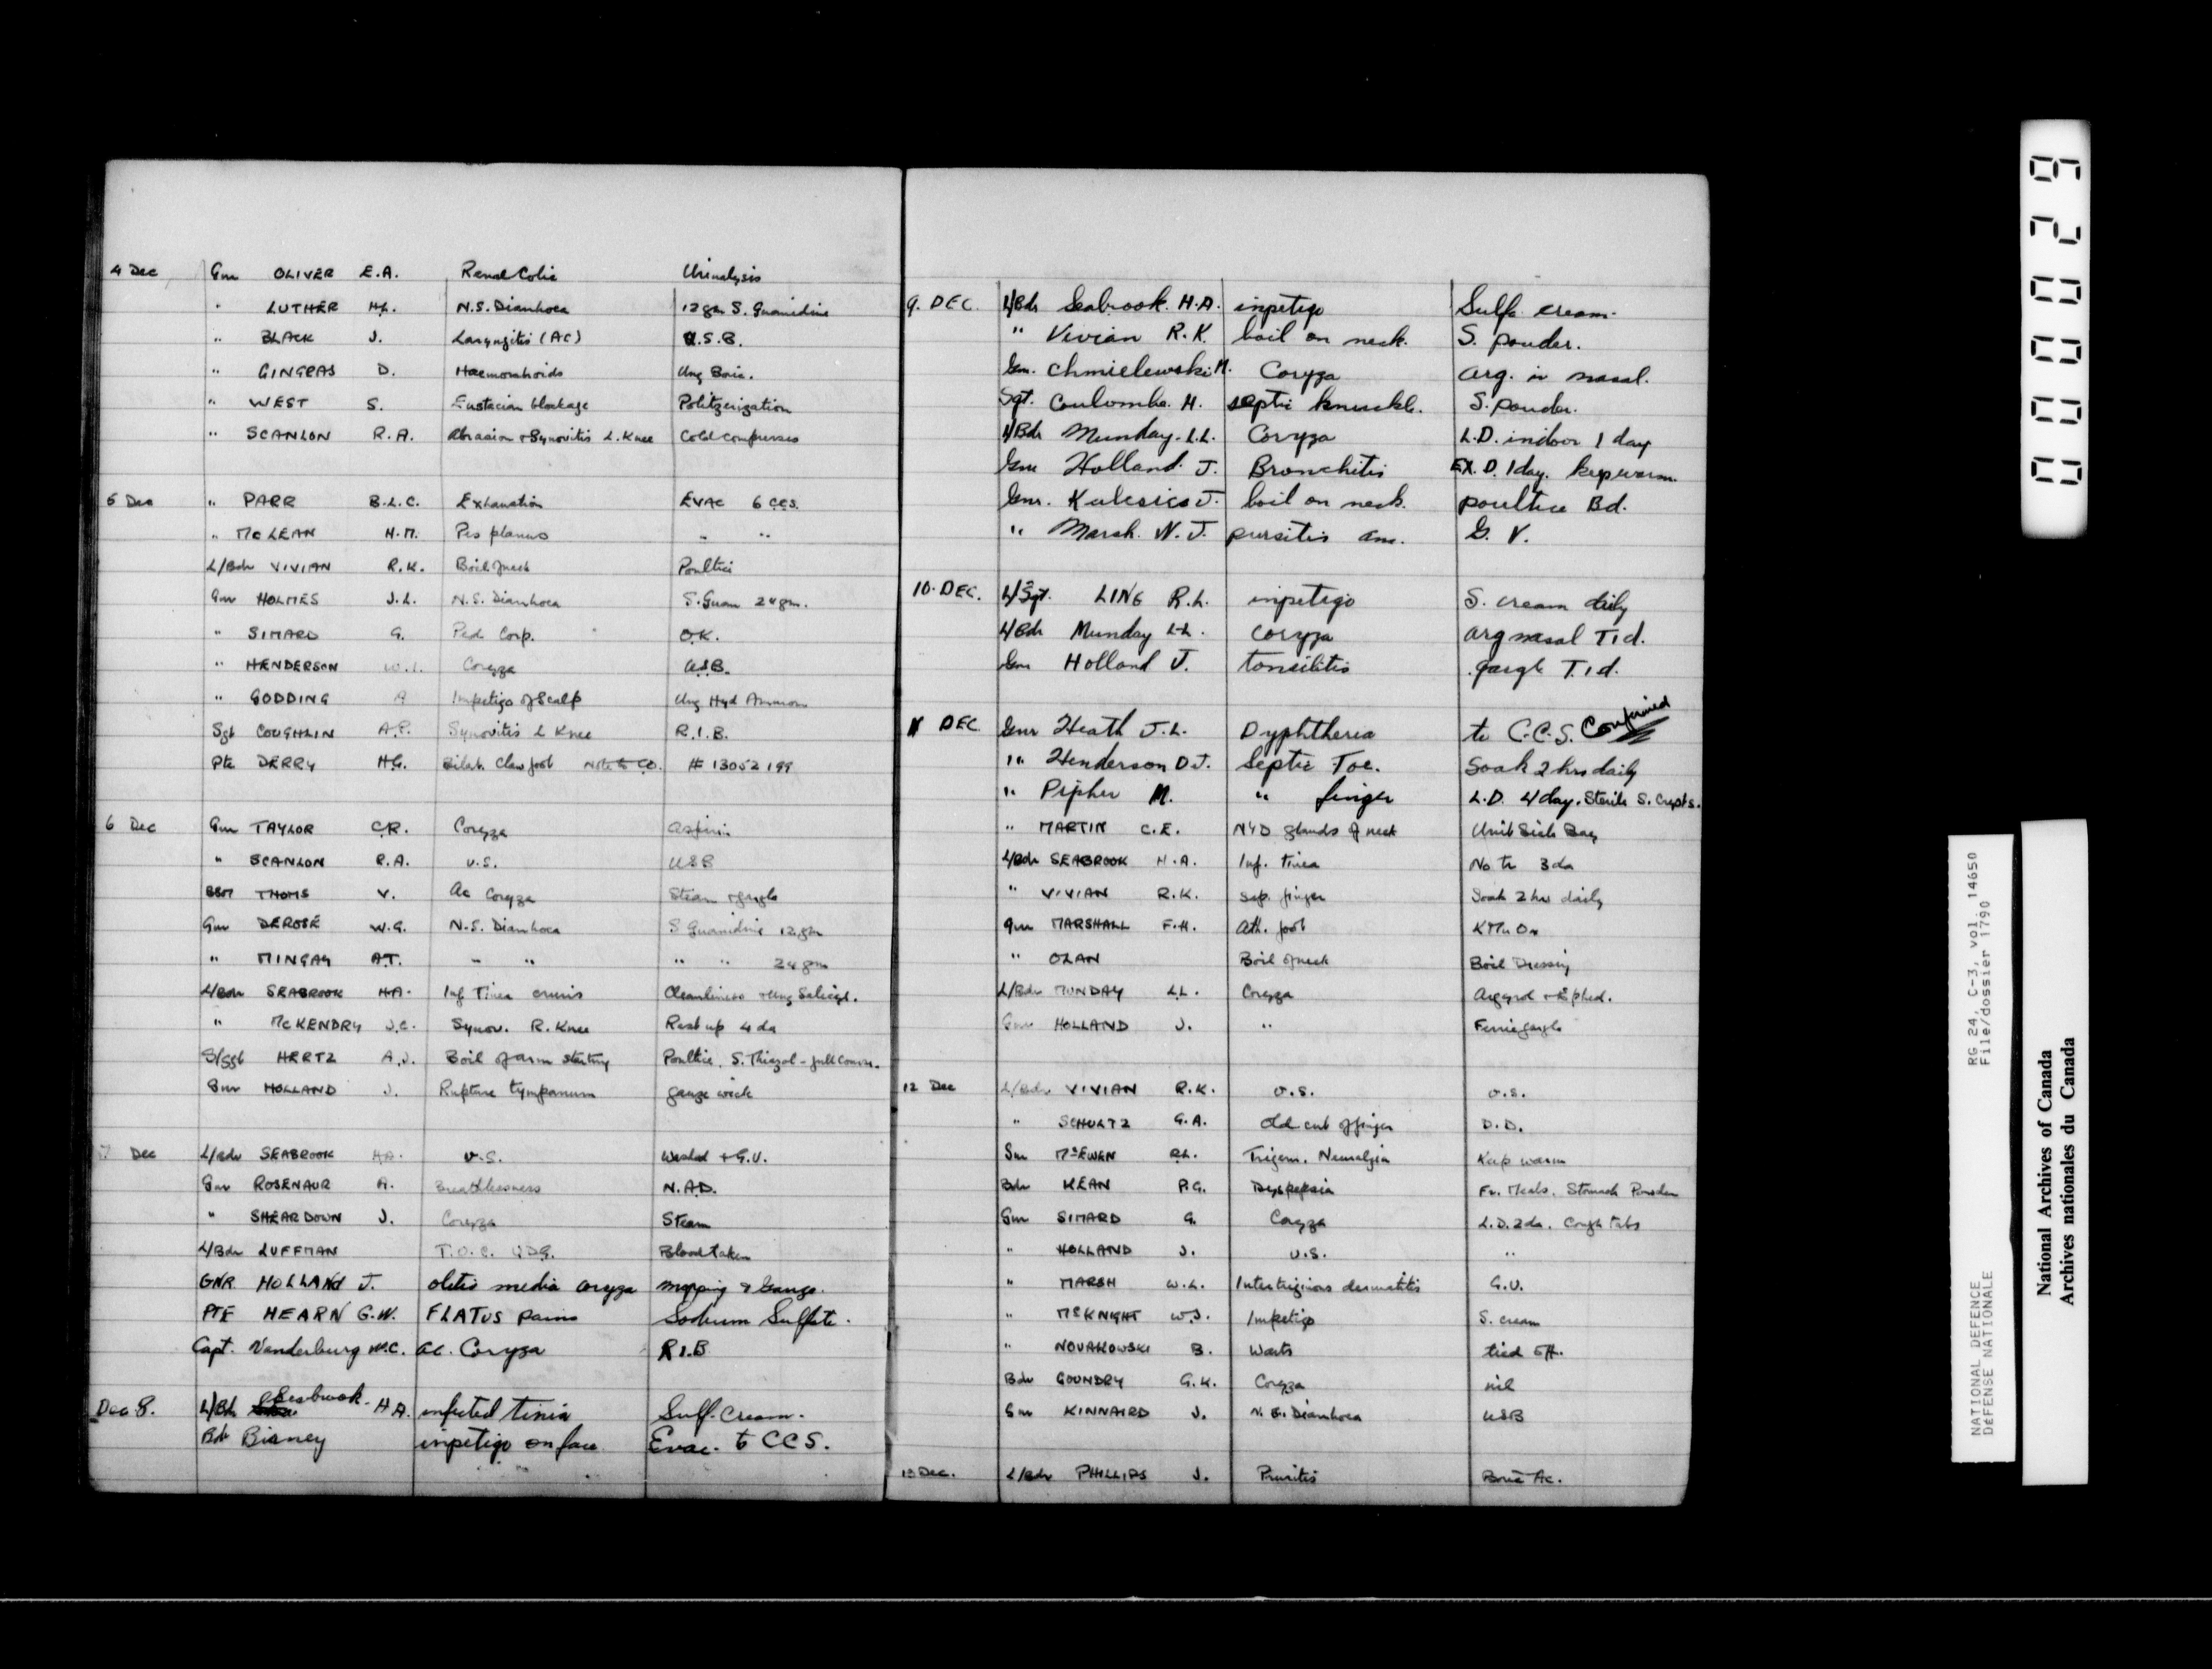 4 Dec Gnr OLIVER E.A. Renal Colic Urinalysis
" LUTHER H.L. N.S. Diarrhoea 12 gm S. Guanidine
" BLACK J. Laryngitis (AC) U.S.B.
" GINGRAS D. Haemorrhoids Ung Boric.
" WEST S. Eustacian blockage Politzerization
" SCANLON R.A. Abrasion + Synovitis L. Knee Cold compresses
5 Dec " PARR B.L.C. Exhaustion EVAC 6 CCS.
" McLEAN H.M. Pes planus " "
L/Bdr VIVIAN R.K. Boil of neck Poultice
Gnr HOLMES J.L. N.S. Diarrhoea S. Guan 24 gm.
" SIMARD G. Ped. Corp. O.K.
" HENDERSON W.I. Coryza U.S.B.
" GODDING A Impetigo of Scalp Ung Hyd Ammon
Sgt COUGHLIN A.P. Synovitis L Knee R.I.B.
Pte DERRY H.G. Bilat. Claw foot Note to CO. # 13052199
6 Dec Gnr TAYLOR C.R. Coryza Aspirin
" SCANLON R.A. U.S. USB
BSM THOMS V. Ac Coryza Steam + gargle
Gnr DEROSE W.G. N.S. Diarrhoea S Guanidine 12 gm
" MINGAY A.T. " " " " 24 gm
L/Bdr SEABROOK H.A. Inf Tinea cruris Cleanliness + Ung Salicyl.
" McKENDRY J.C. Synov. R. Knee Rest up 4 da
S/Sgt HERTZ A.J. Boil of arm starting Poultice, S. Thiazol - full course.
Gnr HOLLAND J. Rupture tympanum gauze wick
7 Dec L/Bdr SEABROOK H.A. U.S. Washed + G.V.
Gnr ROSENAUR A. Breathlessness N.A.D.
" SHEARDOWN J. Coryza Steam
L/Bdr LUFFMAN T.O.C. VDG. Blood taken
GNR HOLLAND J. otitis media coryza mopping & Gauze.
PTE HEARN G.W. FLATUS pains Sodium Sulfate.
Capt. Vanderburg M.C. ac. Coryza R I.B
Dec 8. L/Bdr Seabrook. H.A. infected tinia Sulf. Cream.
Bdr Bisney inpetigo on face Evac. to CCS.
9. DEC. L/Bdr Seabrook. H.A. inpetigo Sulfa cream.
" Vivian R.K. boil on neck. S. powder.
Gnr. Chmielewski M. Coryza arg. in nasal.
Sgt. Coulombe. H. septic knuckle. S. powder.
L/Bdr Munday. L.L. Coryza L.D. indoor 1 day
Gnr Holland. J. Bronchitis EX. D. 1 day. keep warm.
Gnr. Kulesics J. boil on neck. poultice Bd.
" Marsh. W. J. puritis ani. G. V.
10. DEC. L/Sgt. LING R.L. inpetigo S. cream daily
L/Bdr Munday L.L. coryza arg nasal T.i.d.
Gnr Holland J. tonsilitis gargle T.i.d.
11 DEC Gnr Heath J.L. Dyphtheria to C.C.S. Confirmed
" Henderson D J. Septic Toe. Soak 2 hrs daily
" Pipher M. " finger L.D. 4 day. Sterile S.
" MARTIN C.E. NYD glands of neck Unit Sick Bay
L/Bdr SEABROOK H.A. Inf. tinea No tr 3 da
" VIVIAN R.K. Sep. finger Soak 2 hrs daily
Gnr MARSHALL F.H. Ath. foot KMnO4
" OLAN Boil of neck Boil Dressing
L/Bdr MUNDAY L.L. Coryza Argyrol + Ephed.
Gnr HOLLAND J. " Ferric gargle
12 Dec L/Bdr VIVIAN R.K. U.S. U.S.
" SCHULTZ G.A. Old cut of finger D.D.
Gnr McEWEN R.L. Trigem. Neuralgia Keep warm
Bdr KEAN P.G. Dyspepsia Fr. Meals. Stomach Powder
Gnr SIMARD G. Coryza L.D. 2 da. Cough tabs
" HOLLAND J. U.S. "
" MARSH W.L. Intertriginous dermatitis G.V.
" McKNIGHT W.J. Impetigo S. cream
" NOVAKOWSKI B. Warts tied off.
Bdr GOUNDRY G.K. Coryza nil
Gnr KINNAIRD J. N.S. Diarrhoea USB
13 Dec. L/Bdr PHILLIPS J. Pruritis Boric Ac.
000029
NATIONAL DEFENCE RG 24, C-3, vol. 14650
DÉFENSE NATIONALE File/dossier 1790
National Archives of Canada
Archives nationales du Canada